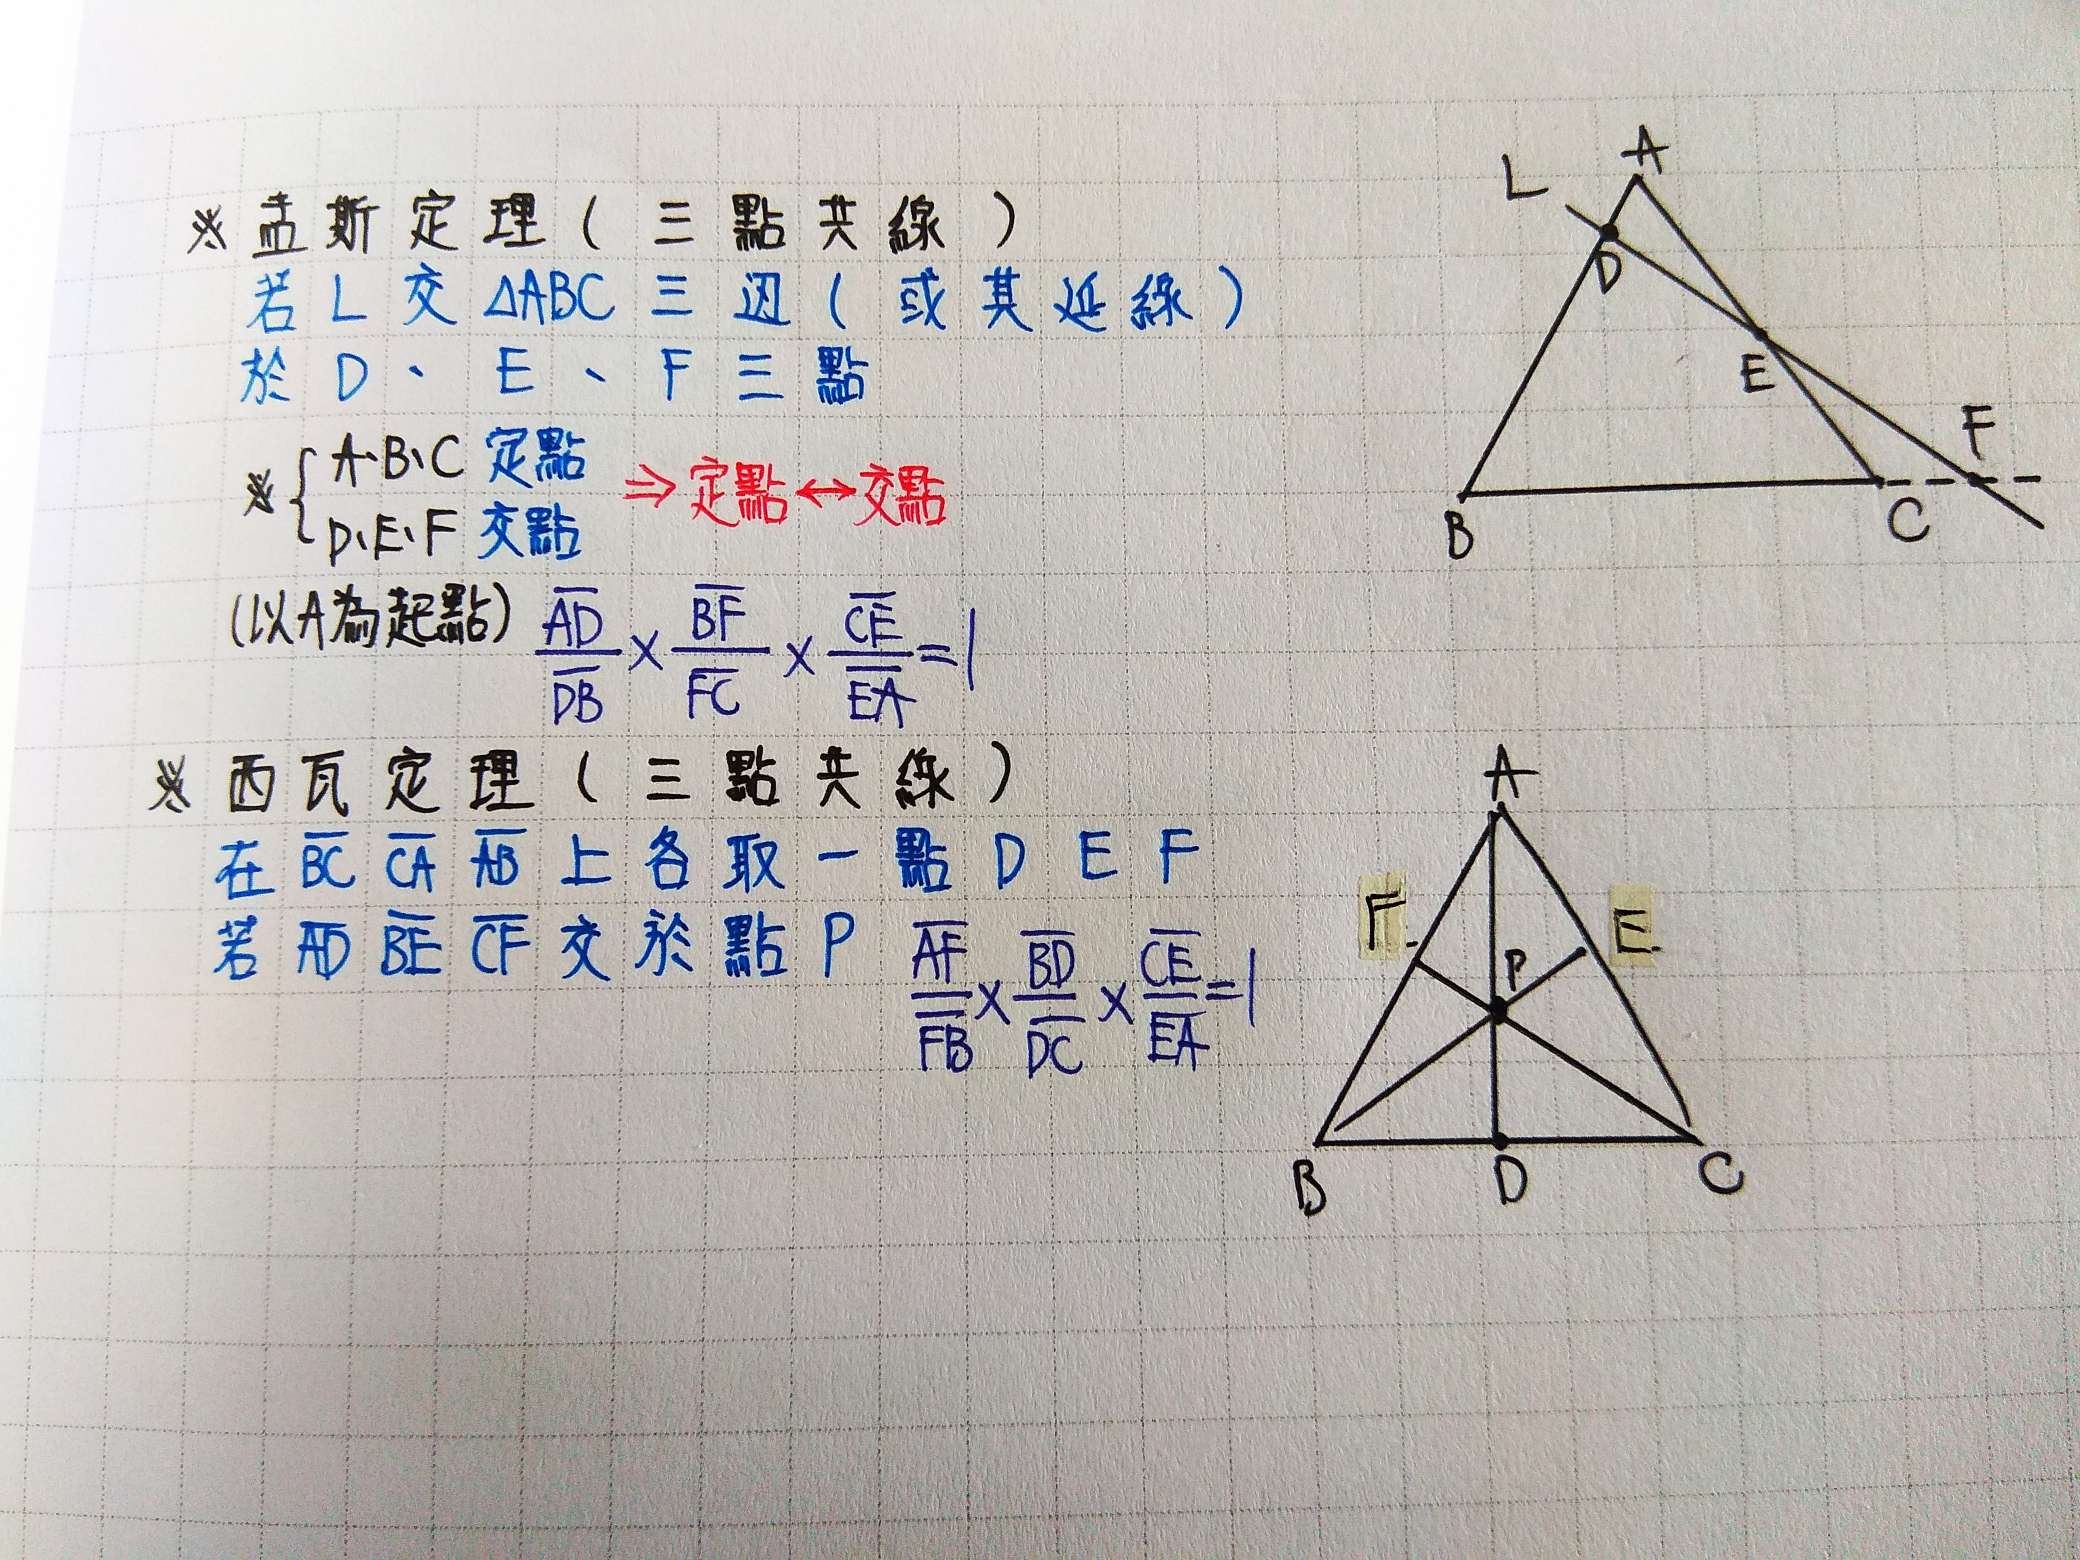 ※孟斯定理(三點共線)
若L交△ABC三边(或其延線)
於D、E、F三點
※{A、B、C定點
D、E、F交點
⇒定點↔交點
(以A為起點) A̅D̅/D̅B̅×B̅F̅/F̅C̅×C̅E̅/E̅A̅=1
※西瓦定理(三點共線)
在B̅C̅ C̅A̅ A̅B̅上各取一點D E F
若A̅D̅ B̅E̅ C̅F̅交於點P A̅F̅/F̅B̅×B̅D̅/D̅C̅×C̅E̅/E̅A̅=1
L A
D
E
F
B C
A
F E
P
B D C